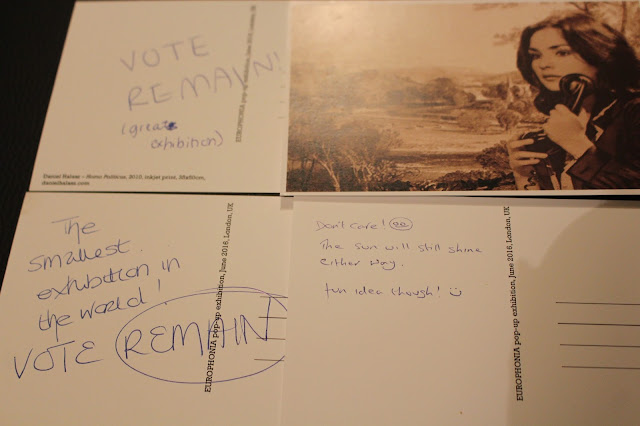 VOTE
REMAIN!
(great
exhibition)
EUROPHONIA pop-up exhibition, June 2016, London, UK
2010, inkjet print,
The
smallest
exhibition in
the world!
VOTE REMAIN
EUROPHONIA pop-up exhibition, June 2016, London, UK
Don't care!
The sun will still shine
either way.
fun idea though!
EUROPHONIA pop-up exhibition, June 2016, London, UK